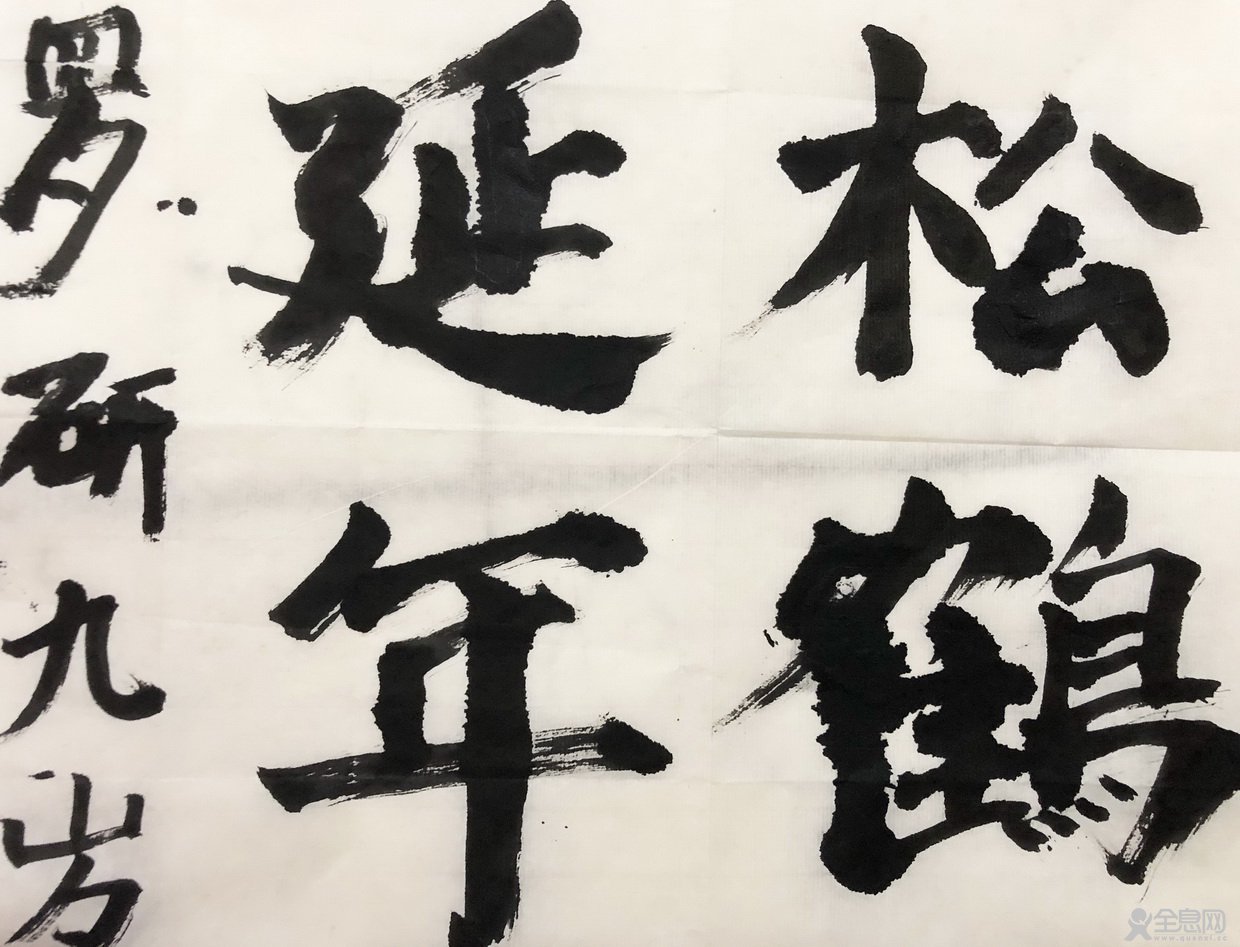 松鹤
延年
罗研九岁
全息网
www.quanxi.cc